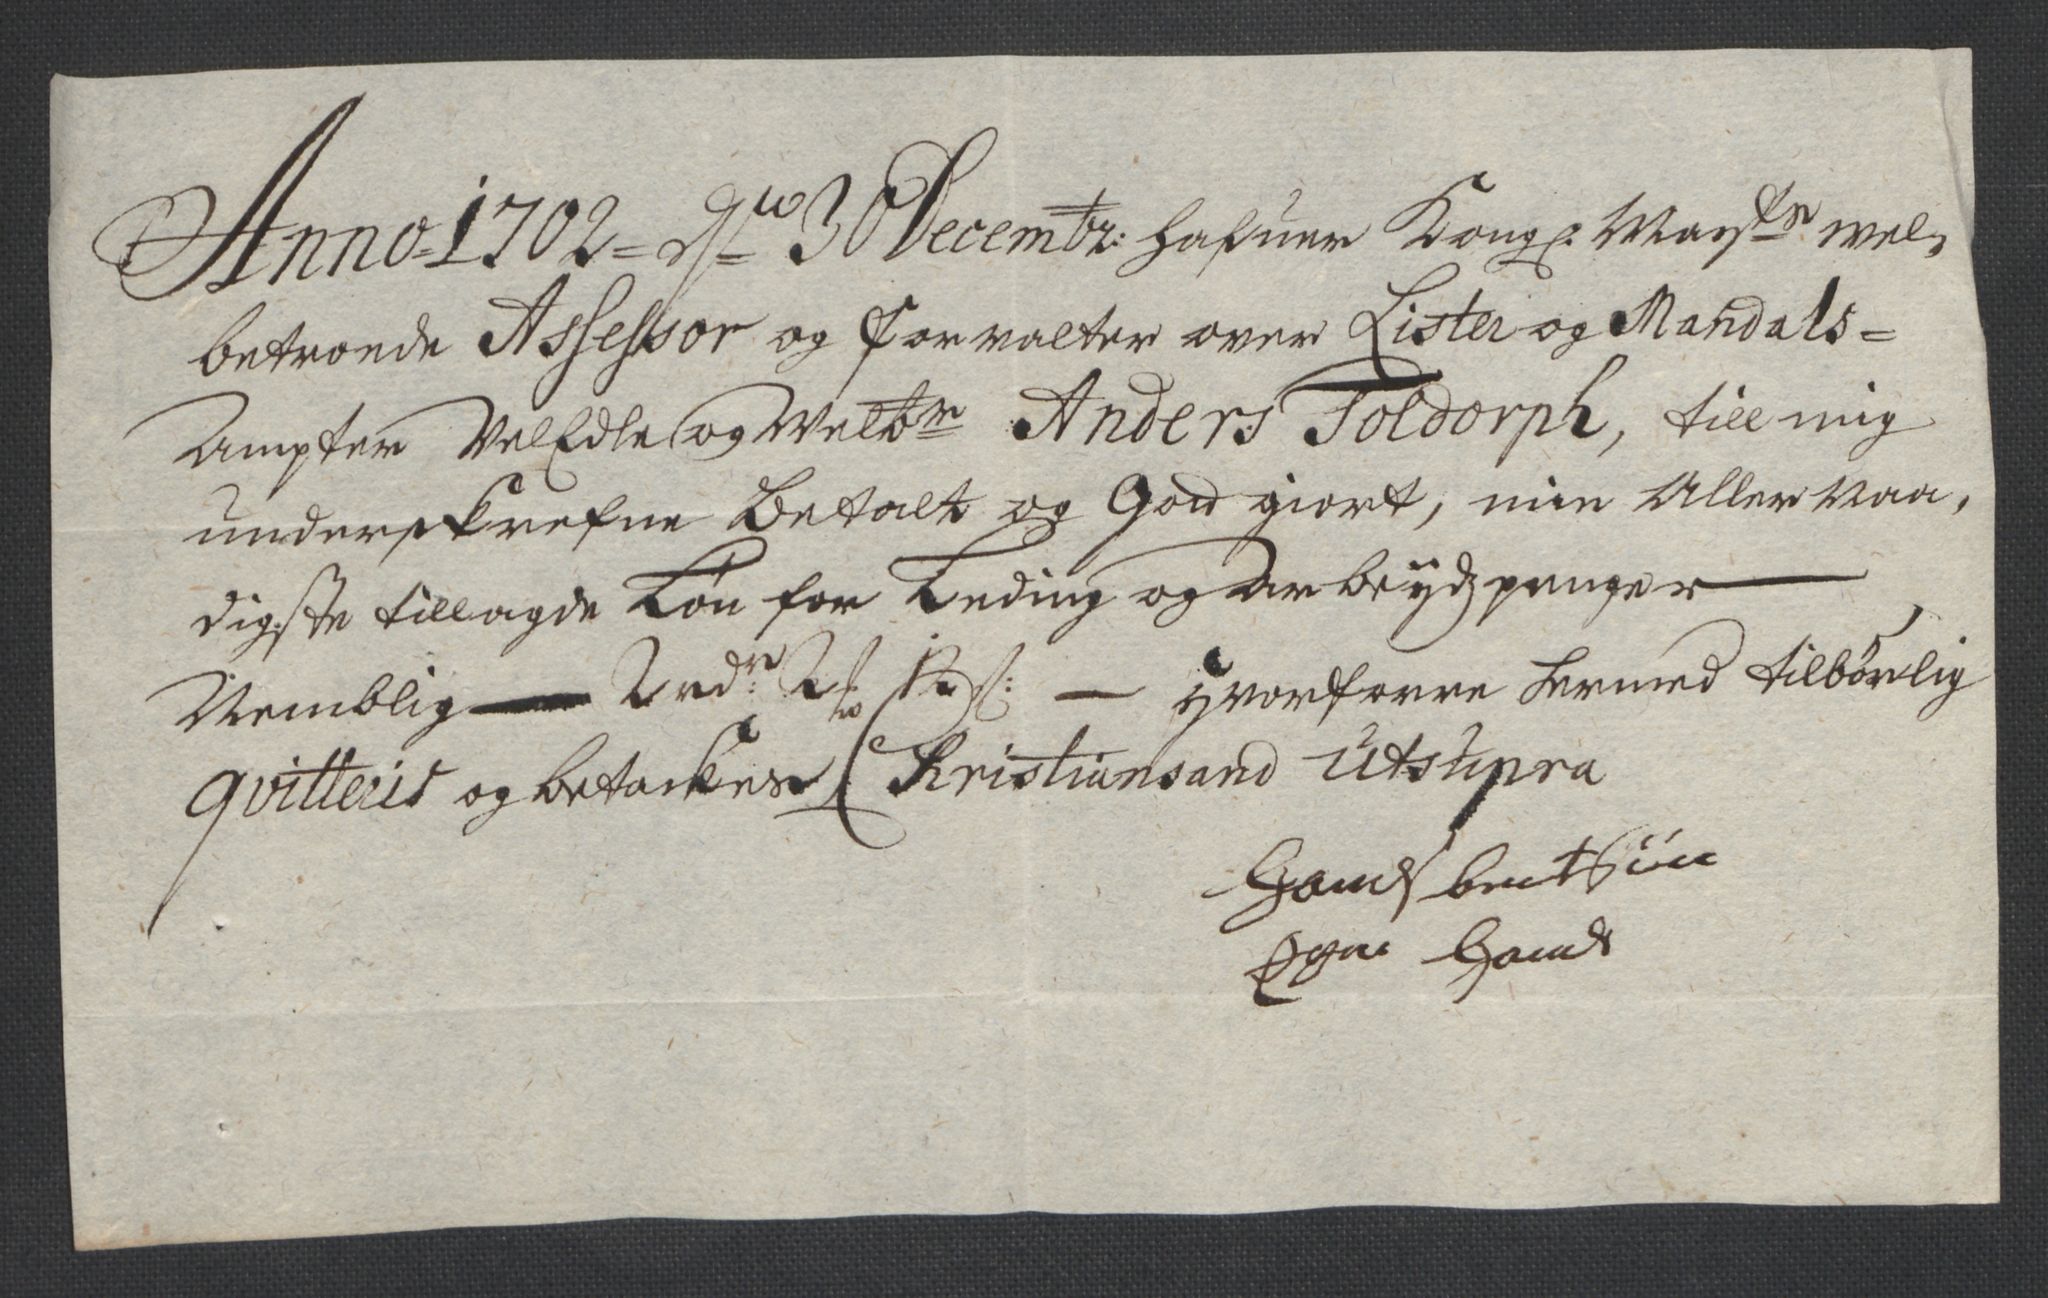 Anno 1702 = dn 30 Decembr: hafuer Kongl: Maysts wel,
betroede Assessor og forvalter over Lister og Mandals=
Ampter VelEdle og Welbr Anders Toldorph, till mig
underskrefne Betalt og God giort, min Aller Naa,
digste tillagde Løn for Leding og Arbeydzpenger
Nemblig — — hvorforre hermed tilbørlig
qvitteris og betackes Christiansand Utsupra
Hands bentSøn
Egen Hand